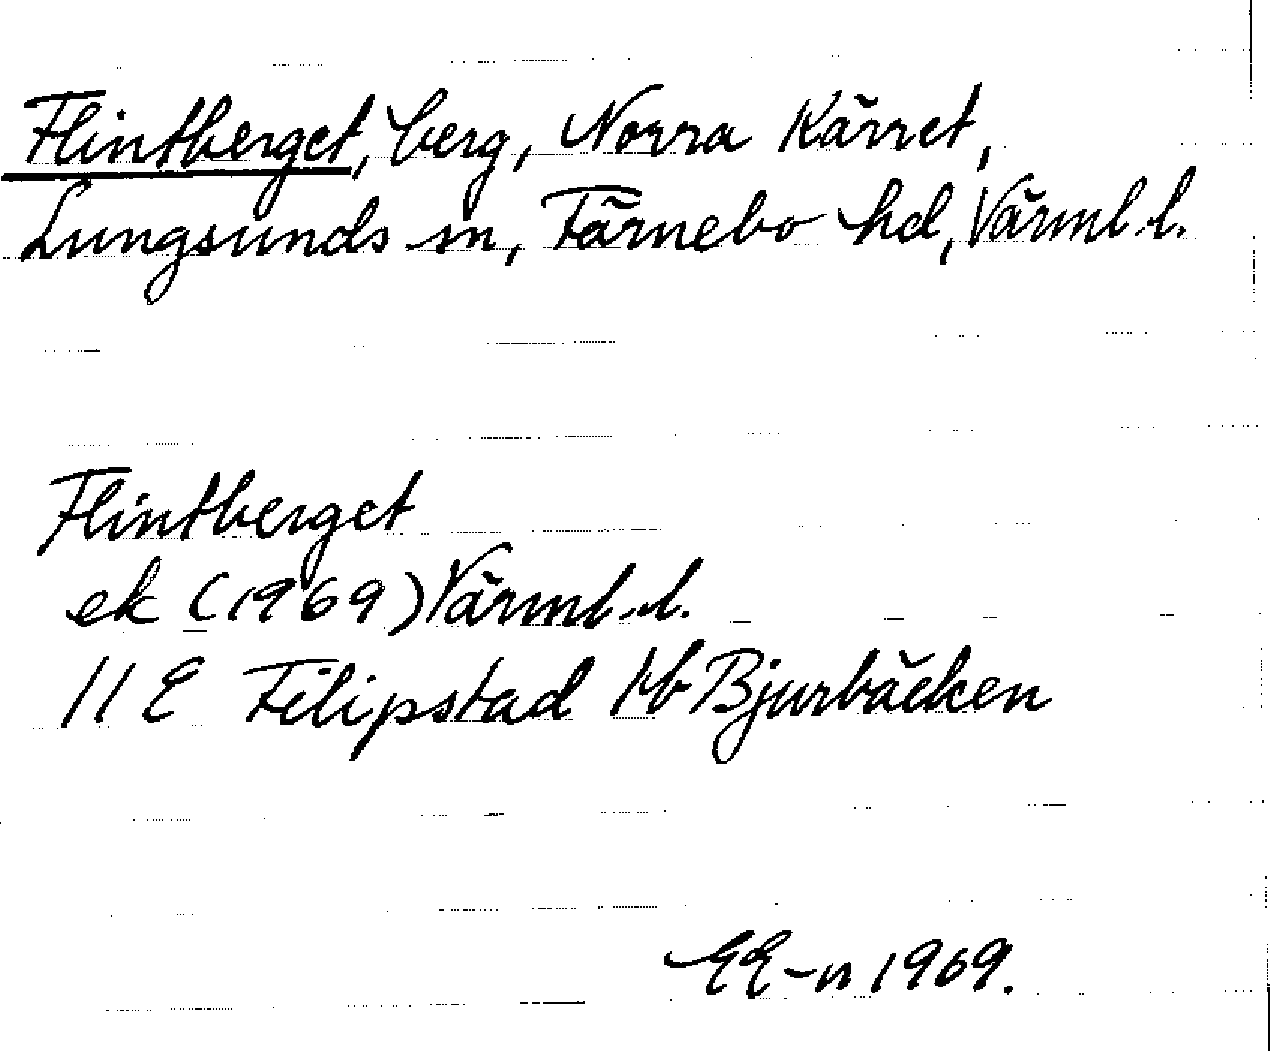 Flintberget, berg, Norra Kärret,
Lungsunds sn, Färnebo hd, Värml. l.
Flintberget
ek (1969) Värml. l.
11 E Filipstad kb Bjurbäcken
EE-n 1969.